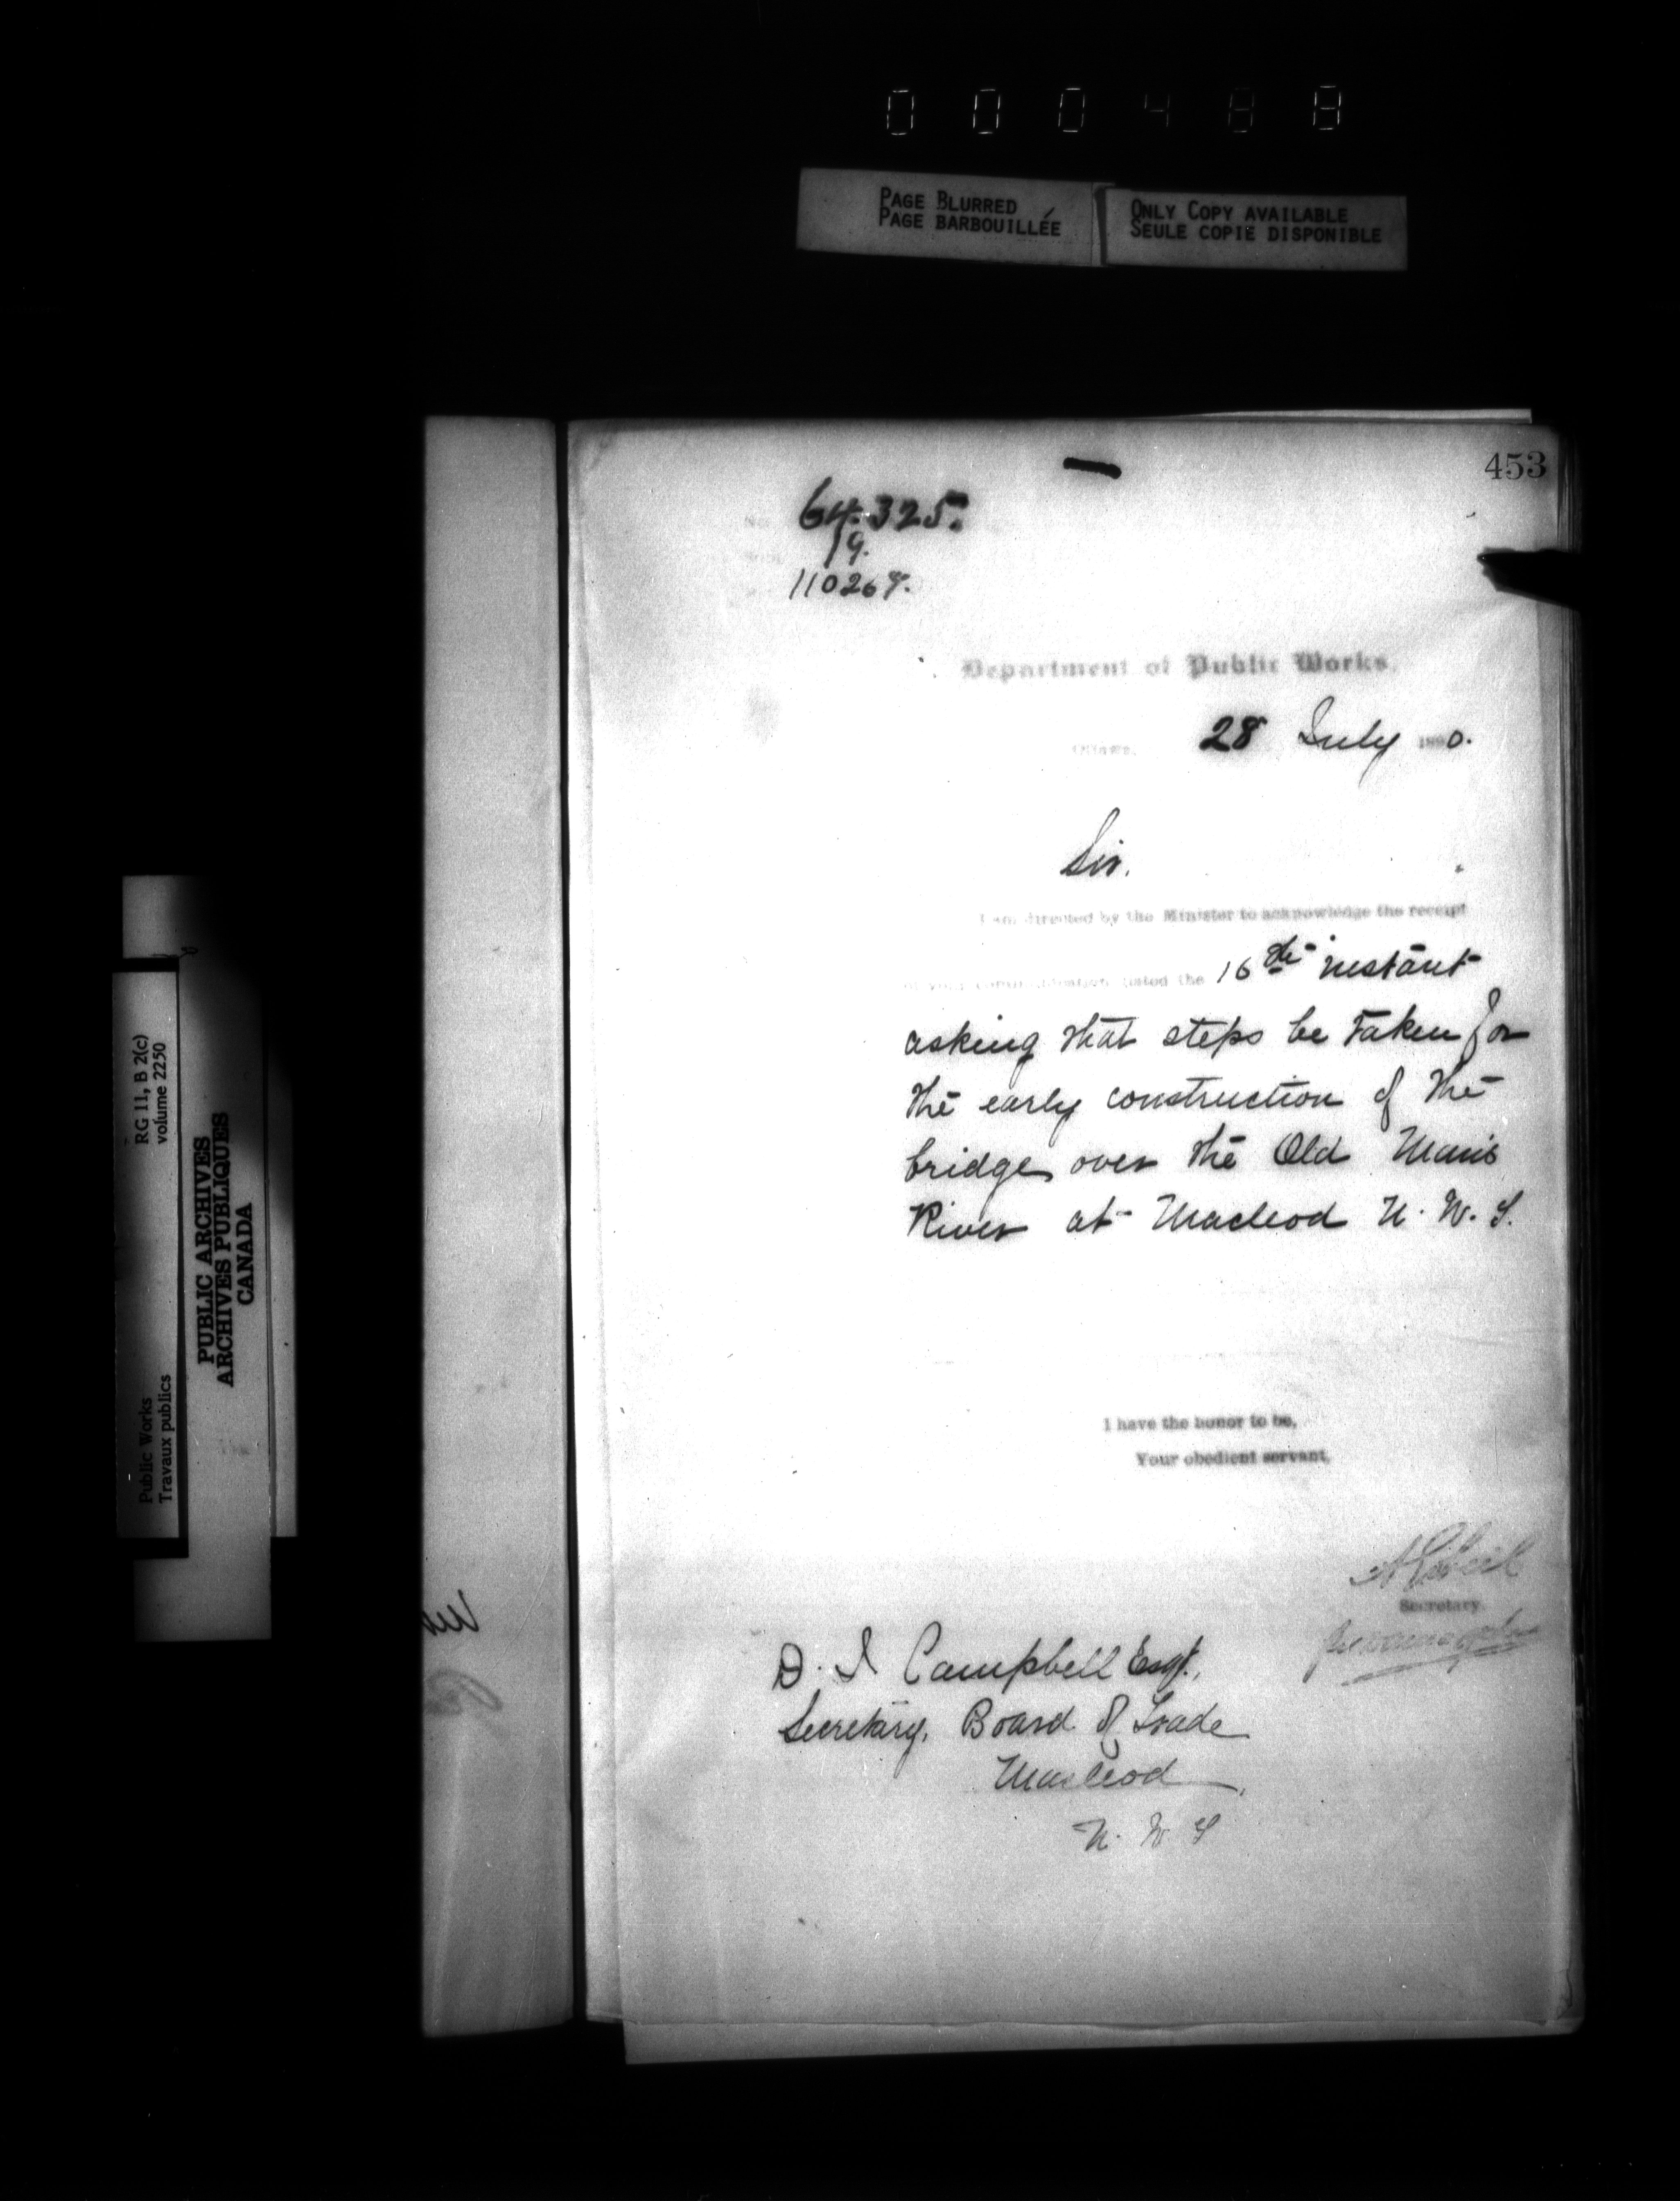 000488
PAGE BLURRED
PAGE BARBOUILLÉE
ONLY COPY AVAILABLE
SEULE COPIE DISPONIBLE
453
64.325.
19.
Department of Public Works.
Ottawa, 28 July 1890.
Sir.
I am directed by the Minister to acknowledge the receipt
of your communication dated the 16th instant
asking that steps be taken for
the early construction of the
bridge over the Old Man's
River at Macleod N. W. T.
I have the honor to be,
Your obedient servant,
Secretary.
D. J Campbell Esqr.,
Secretary, Board of Trade
Macleod,
N. W T
RG 11, B 2(c)
volume 2250
Public Works
Travaux publics
PUBLIC ARCHIVES
ARCHIVES PUBLIQUES
CANADA